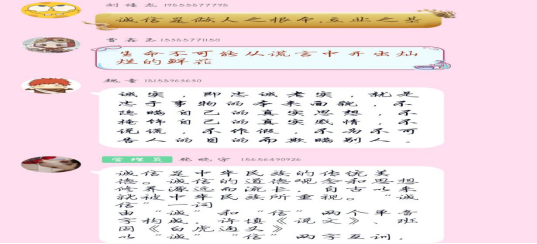 19555577795
诚信是做人之根本,立业之基
曹孟志 15355771150
生命不可能从谎言中开出灿
烂的鲜花
15155963630
诚实,即忠诚老实,就是
忠于事物的本来面貌,不
隐瞒自己的真实思想,不
掩饰自己的真实感情,不
说谎,不作假,不为不可
告人的目的而欺瞒别人。
管理员 15656490926
诚信是中华民族的传统美
德。诚信的道德观念和思想
修养源远而流长,自古以来
就被中华民族所重视。“诚
信”一词
由“诚”和“信”两个单音
字构成,许慎《说文》、班
固《白虎通义》
以“诚”“信”两字互训,